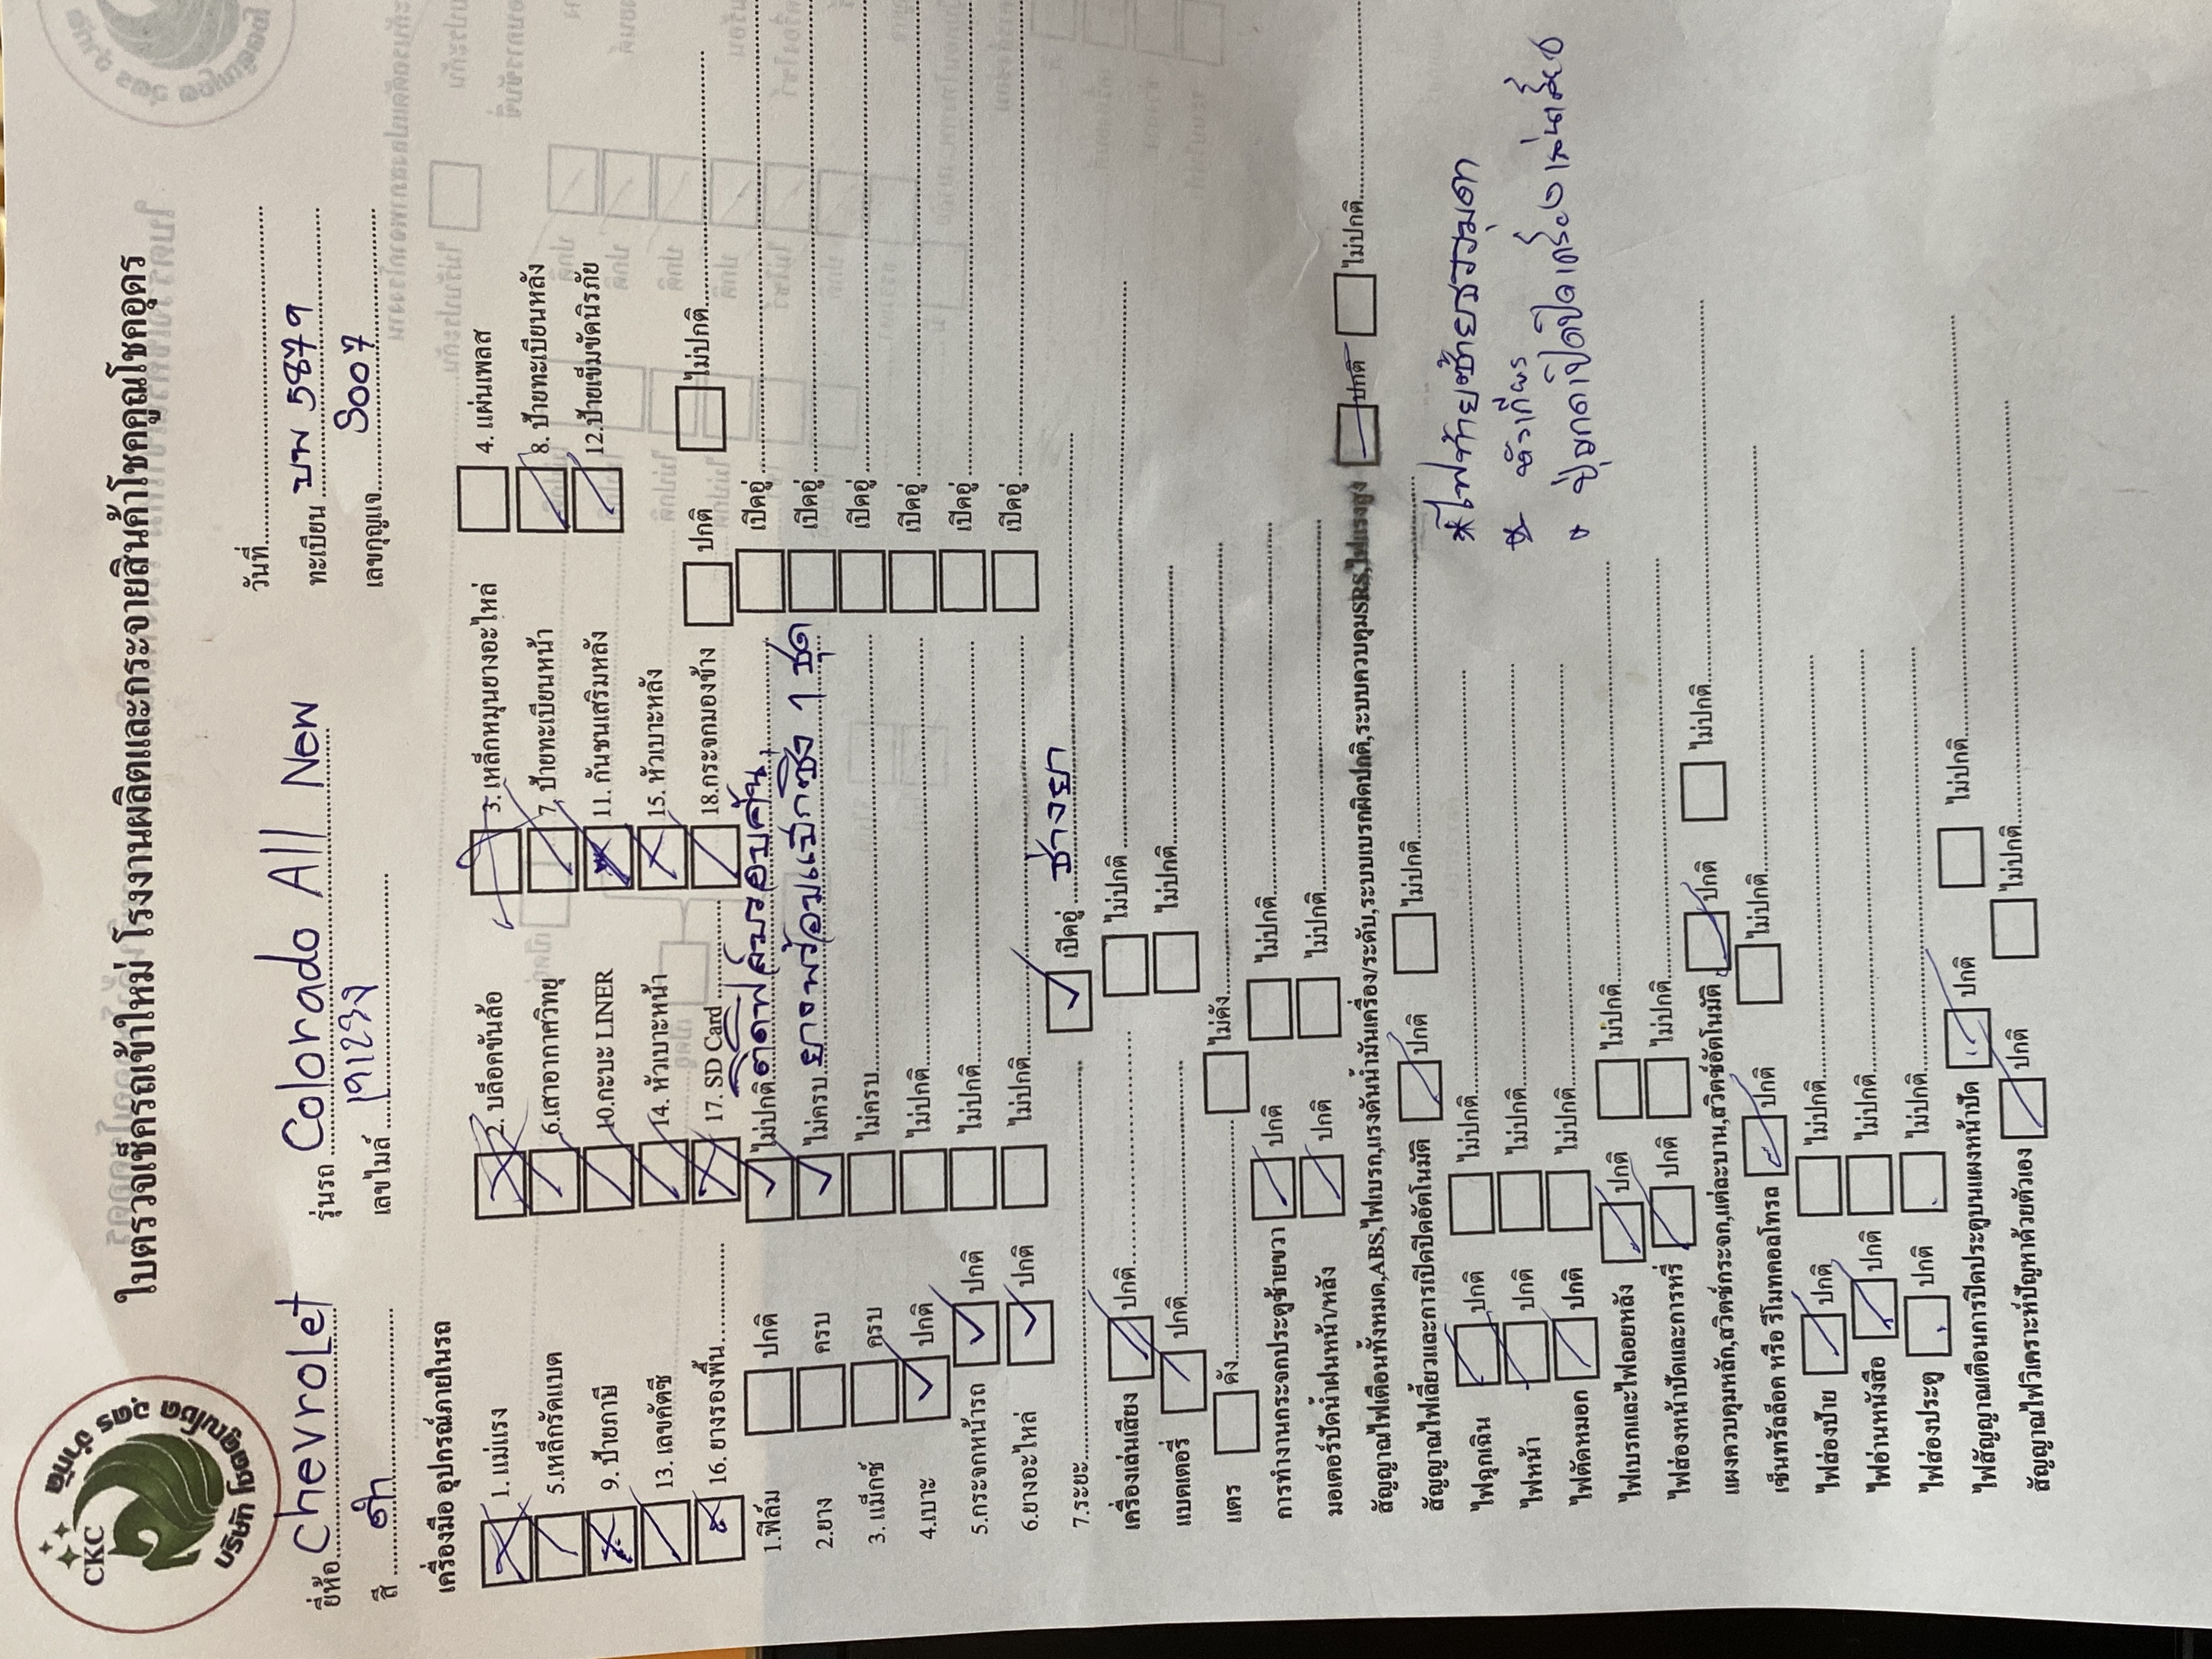 CKC
บริษัท โชคคูณโชค อุดร จำกัด
ใบตรวจเช็ครถเข้าใหม่ โรงงานผลิตและกระจายสินค้าโชคคูณโชคอุดร
วันที่
ยี่ห้อ Chevrolet รุ่นรถ Colorado All New ทะเบียน บพ 5879
สี ดำ เลขไมล์ เลขกุญแจ 3007
เครื่องมือ อุปกรณ์ภายในรถ
1. แม่แรง 2. บล็อคขันล้อ 3. เหล็กหมุนยางอะไหล่ 4. แผ่นเพลส
5.เหล็กรัดแบต 6.เสาอากาศวิทยุ 7. ป้ายทะเบียนหน้า 8. ป้ายทะเบียนหลัง
9. ป้ายภาษี 10.กะบะ LINER 11. กันชนเสริมหลัง 12.ป้ายเข็มขัดนิรภัย
13. เลขคัตซี 14. หัวเบาะหน้า 15. หัวเบาะหลัง
16. ยางรองพื้น 17. SD Card 18.กระจกมองข้าง ปกติ ไม่ปกติ
1.ฟิล์ม ปกติ ไม่ปกติ ติดฟิล์มรอบคัน เปิดอู่
2.ยาง ครบ ไม่ครบ ยางพร้อมแม็กซิ่ง 1 ชุด เปิดอู่
3. แม็กซ์ ครบ ไม่ครบ เปิดอู่
4.เบาะ ปกติ ไม่ปกติ เปิดอู่
5.กระจกหน้ารถ ปกติ ไม่ปกติ เปิดอู่
6.ยางอะไหล่ ปกติ ไม่ปกติ เปิดอู่
7.ระยะ เปิดอู่ ช่างยา
เครื่องเล่นเสียง ปกติ ไม่ปกติ
แบตเตอรี่ ปกติ ไม่ปกติ
แตร ดัง ไม่ดัง
การทำงานกระจกประตูซ้ายขวา ปกติ ไม่ปกติ
มอเตอร์ปัดน้ำฝนหน้า/หลัง ปกติ ไม่ปกติ
สัญญาณไฟเตือนทั้งหมด,ABS,ไฟเบรก,แรงดันน้ำมันเครื่อง/ระดับ,ระบบเบรกผิดปกติ,ระบบควบคุมSRS,ไฟแรงสูง ปกติ ไม่ปกติ
สัญญาณไฟเลี้ยวและการเปิดปิดอัตโนมัติ ปกติ ไม่ปกติ
ไฟฉุกเฉิน ปกติ ไม่ปกติ
*ไฟท้ายซ้ายธรรมดา
ไฟหน้า ปกติ ไม่ปกติ
* หัวเกียร์
ไฟตัดหมอก ปกติ ไม่ปกติ
ไฟเบรกและไฟถอยหลัง ปกติ ไม่ปกติ
ไฟส่องหน้าปัดและการหรี่ ปกติ ไม่ปกติ
แผงควบคุมหลัก,สวิตช์กระจก,แต่ละบาน,สวิตซ์อัตโนมัติ ปกติ ไม่ปกติ
เซ็นทรัลล็อค หรือ รีโมทคอลโทรล ปกติ ไม่ปกติ
ไฟส่องป้าย ปกติ ไม่ปกติ
ไฟอ่านหนังสือ ปกติ ไม่ปกติ
ไฟส่องประตู ปกติ ไม่ปกติ
ไฟสัญญาณเตือนการปิดประตูบนแผงหน้าปัด ปกติ ไม่ปกติ
สัญญาณไฟวิเคราะห์ปัญหาด้วยตัวเอง ปกติ ไม่ปกติ